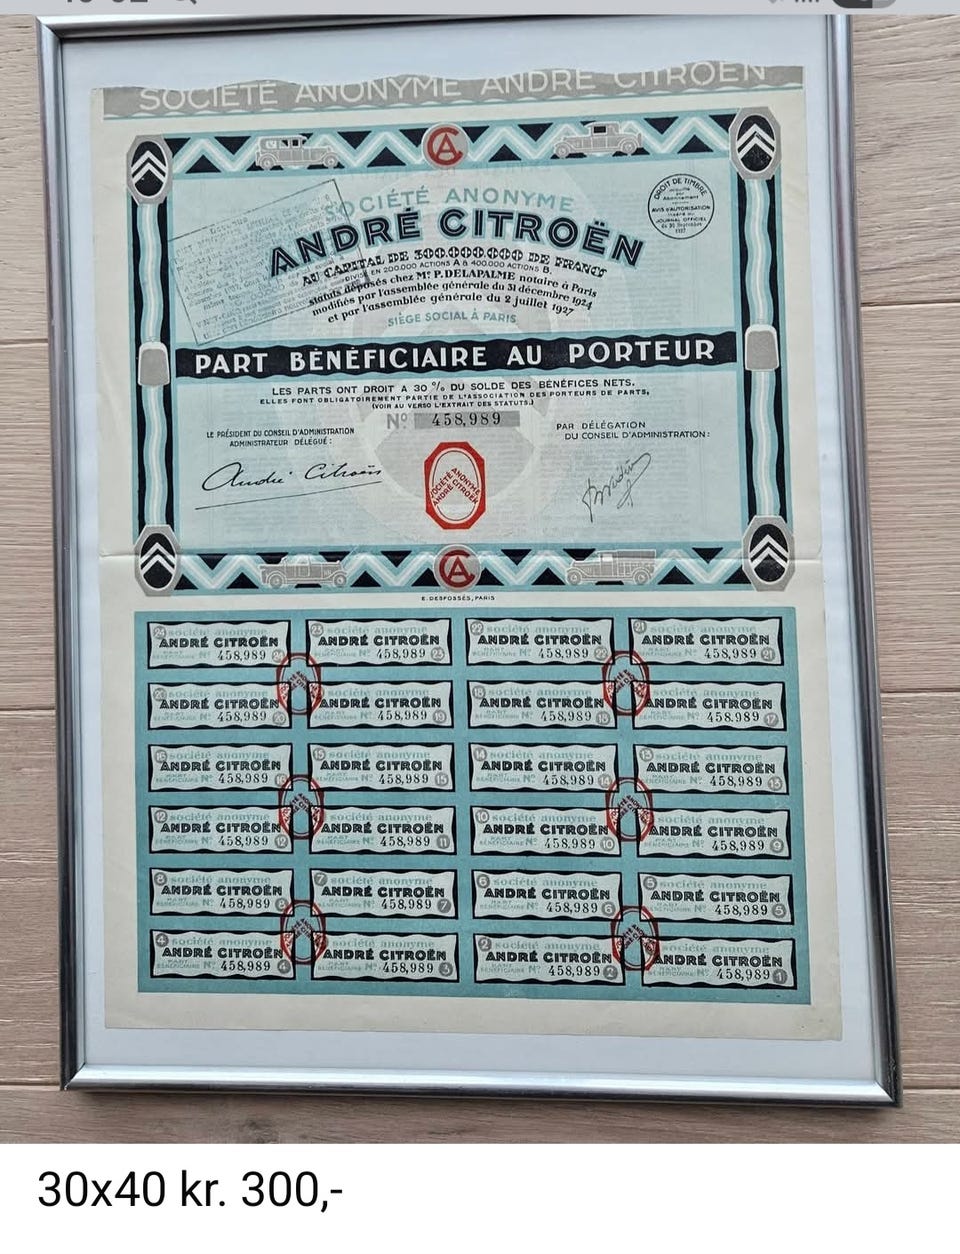 SOCIÉTÉ ANONYME ANDRÉ CITROËN
CA
SOCIÉTÉ ANONYME
ANDRÉ CITROËN
AU CAPITAL DE 300.000.000 DE FRANCS
DIVISÉ EN 200.000 ACTIONS A & 400.000 ACTIONS B.
statuts déposés chez Mᵉ. P. DELAPALME notaire à Paris
modifiés par l'assemblée générale du 31 décembre 1924
et par l'assemblée générale du 2 juillet 1927
SIÈGE SOCIAL À PARIS
DROIT DE TIMBRE
Abonnement
AVIS D'AUTORISATION
JOURNAL OFFICIEL
1927
PART BÉNÉFICIAIRE AU PORTEUR
LES PARTS ONT DROIT A 30 % DU SOLDE DES BÉNÉFICES NETS.
ELLES FONT OBLIGATOIREMENT PARTIE DE L'ASSOCIATION DES PORTEURS DE PARTS,
(VOIR AU VERSO L'EXTRAIT DES STATUTS.)
Nº 458,989
LE PRÉSIDENT DU CONSEIL D'ADMINISTRATION
ADMINISTRATEUR DÉLÉGUÉ :
André Citroën
PAR DÉLÉGATION
DU CONSEIL D'ADMINISTRATION :
SOCIÉTÉ ANONYME
ANDRÉ CITROËN
CA
E. DESFOSSÉS, PARIS
24 société anonyme
ANDRÉ CITROËN
PART BÉNÉFICIAIRE Nº 458,989 24
23 société anonyme
ANDRÉ CITROËN
PART BÉNÉFICIAIRE Nº 458,989 23
22 société anonyme
ANDRÉ CITROËN
PART BÉNÉFICIAIRE Nº 458,989 22
21 société anonyme
ANDRÉ CITROËN
PART BÉNÉFICIAIRE Nº 458,989 21
20 société anonyme
ANDRÉ CITROËN
PART BÉNÉFICIAIRE Nº 458,989 20
société anonyme
ANDRÉ CITROËN
PART BÉNÉFICIAIRE Nº 458,989 19
18 société anonyme
ANDRÉ CITROËN
PART BÉNÉFICIAIRE Nº 458,989 18
société anonyme
ANDRÉ CITROËN
PART BÉNÉFICIAIRE Nº 458,989 17
16 société anonyme
ANDRÉ CITROËN
PART BÉNÉFICIAIRE Nº 458,989 16
15 société anonyme
ANDRÉ CITROËN
PART BÉNÉFICIAIRE Nº 458,989 15
14 société anonyme
ANDRÉ CITROËN
PART BÉNÉFICIAIRE Nº 458,989 14
13 société anonyme
ANDRÉ CITROËN
PART BÉNÉFICIAIRE Nº 458,989 13
12 société anonyme
ANDRÉ CITROËN
PART BÉNÉFICIAIRE Nº 458,989 12
société anonyme
ANDRÉ CITROËN
PART BÉNÉFICIAIRE Nº 458,989 11
10 société anonyme
ANDRÉ CITROËN
PART BÉNÉFICIAIRE Nº 458,989 10
société anonyme
ANDRÉ CITROËN
PART BÉNÉFICIAIRE Nº 458,989 9
8 société anonyme
ANDRÉ CITROËN
PART BÉNÉFICIAIRE Nº 458,989 8
7 société anonyme
ANDRÉ CITROËN
PART BÉNÉFICIAIRE Nº 458,989 7
6 société anonyme
ANDRÉ CITROËN
PART BÉNÉFICIAIRE Nº 458,989 6
5 société anonyme
ANDRÉ CITROËN
PART BÉNÉFICIAIRE Nº 458,989 5
4 société anonyme
ANDRÉ CITROËN
PART BÉNÉFICIAIRE Nº 458,989 4
société anonyme
ANDRÉ CITROËN
PART BÉNÉFICIAIRE Nº 458,989 3
2 société anonyme
ANDRÉ CITROËN
PART BÉNÉFICIAIRE Nº 458,989 2
société anonyme
ANDRÉ CITROËN
PART BÉNÉFICIAIRE Nº 458,989 1
30x40 kr. 300,-